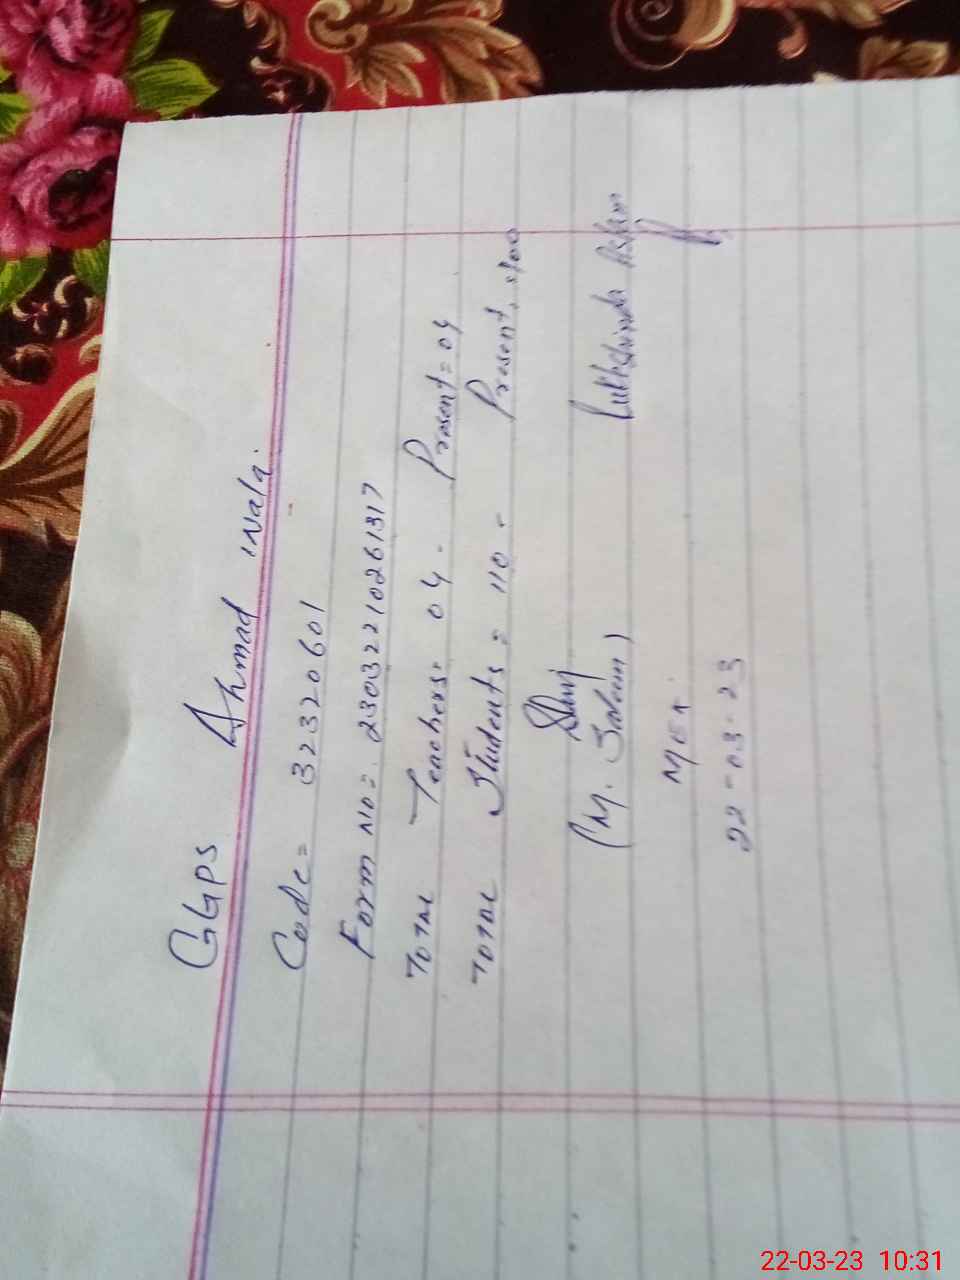 GGPS Ahmad wala
Code = 32320601
Form No = 23032210261317
Total Teachers = 04 - Present = 04
Total Students = 110 - Present
(M. Saleem)
MEA
22-03-23
22-03-23 10:31